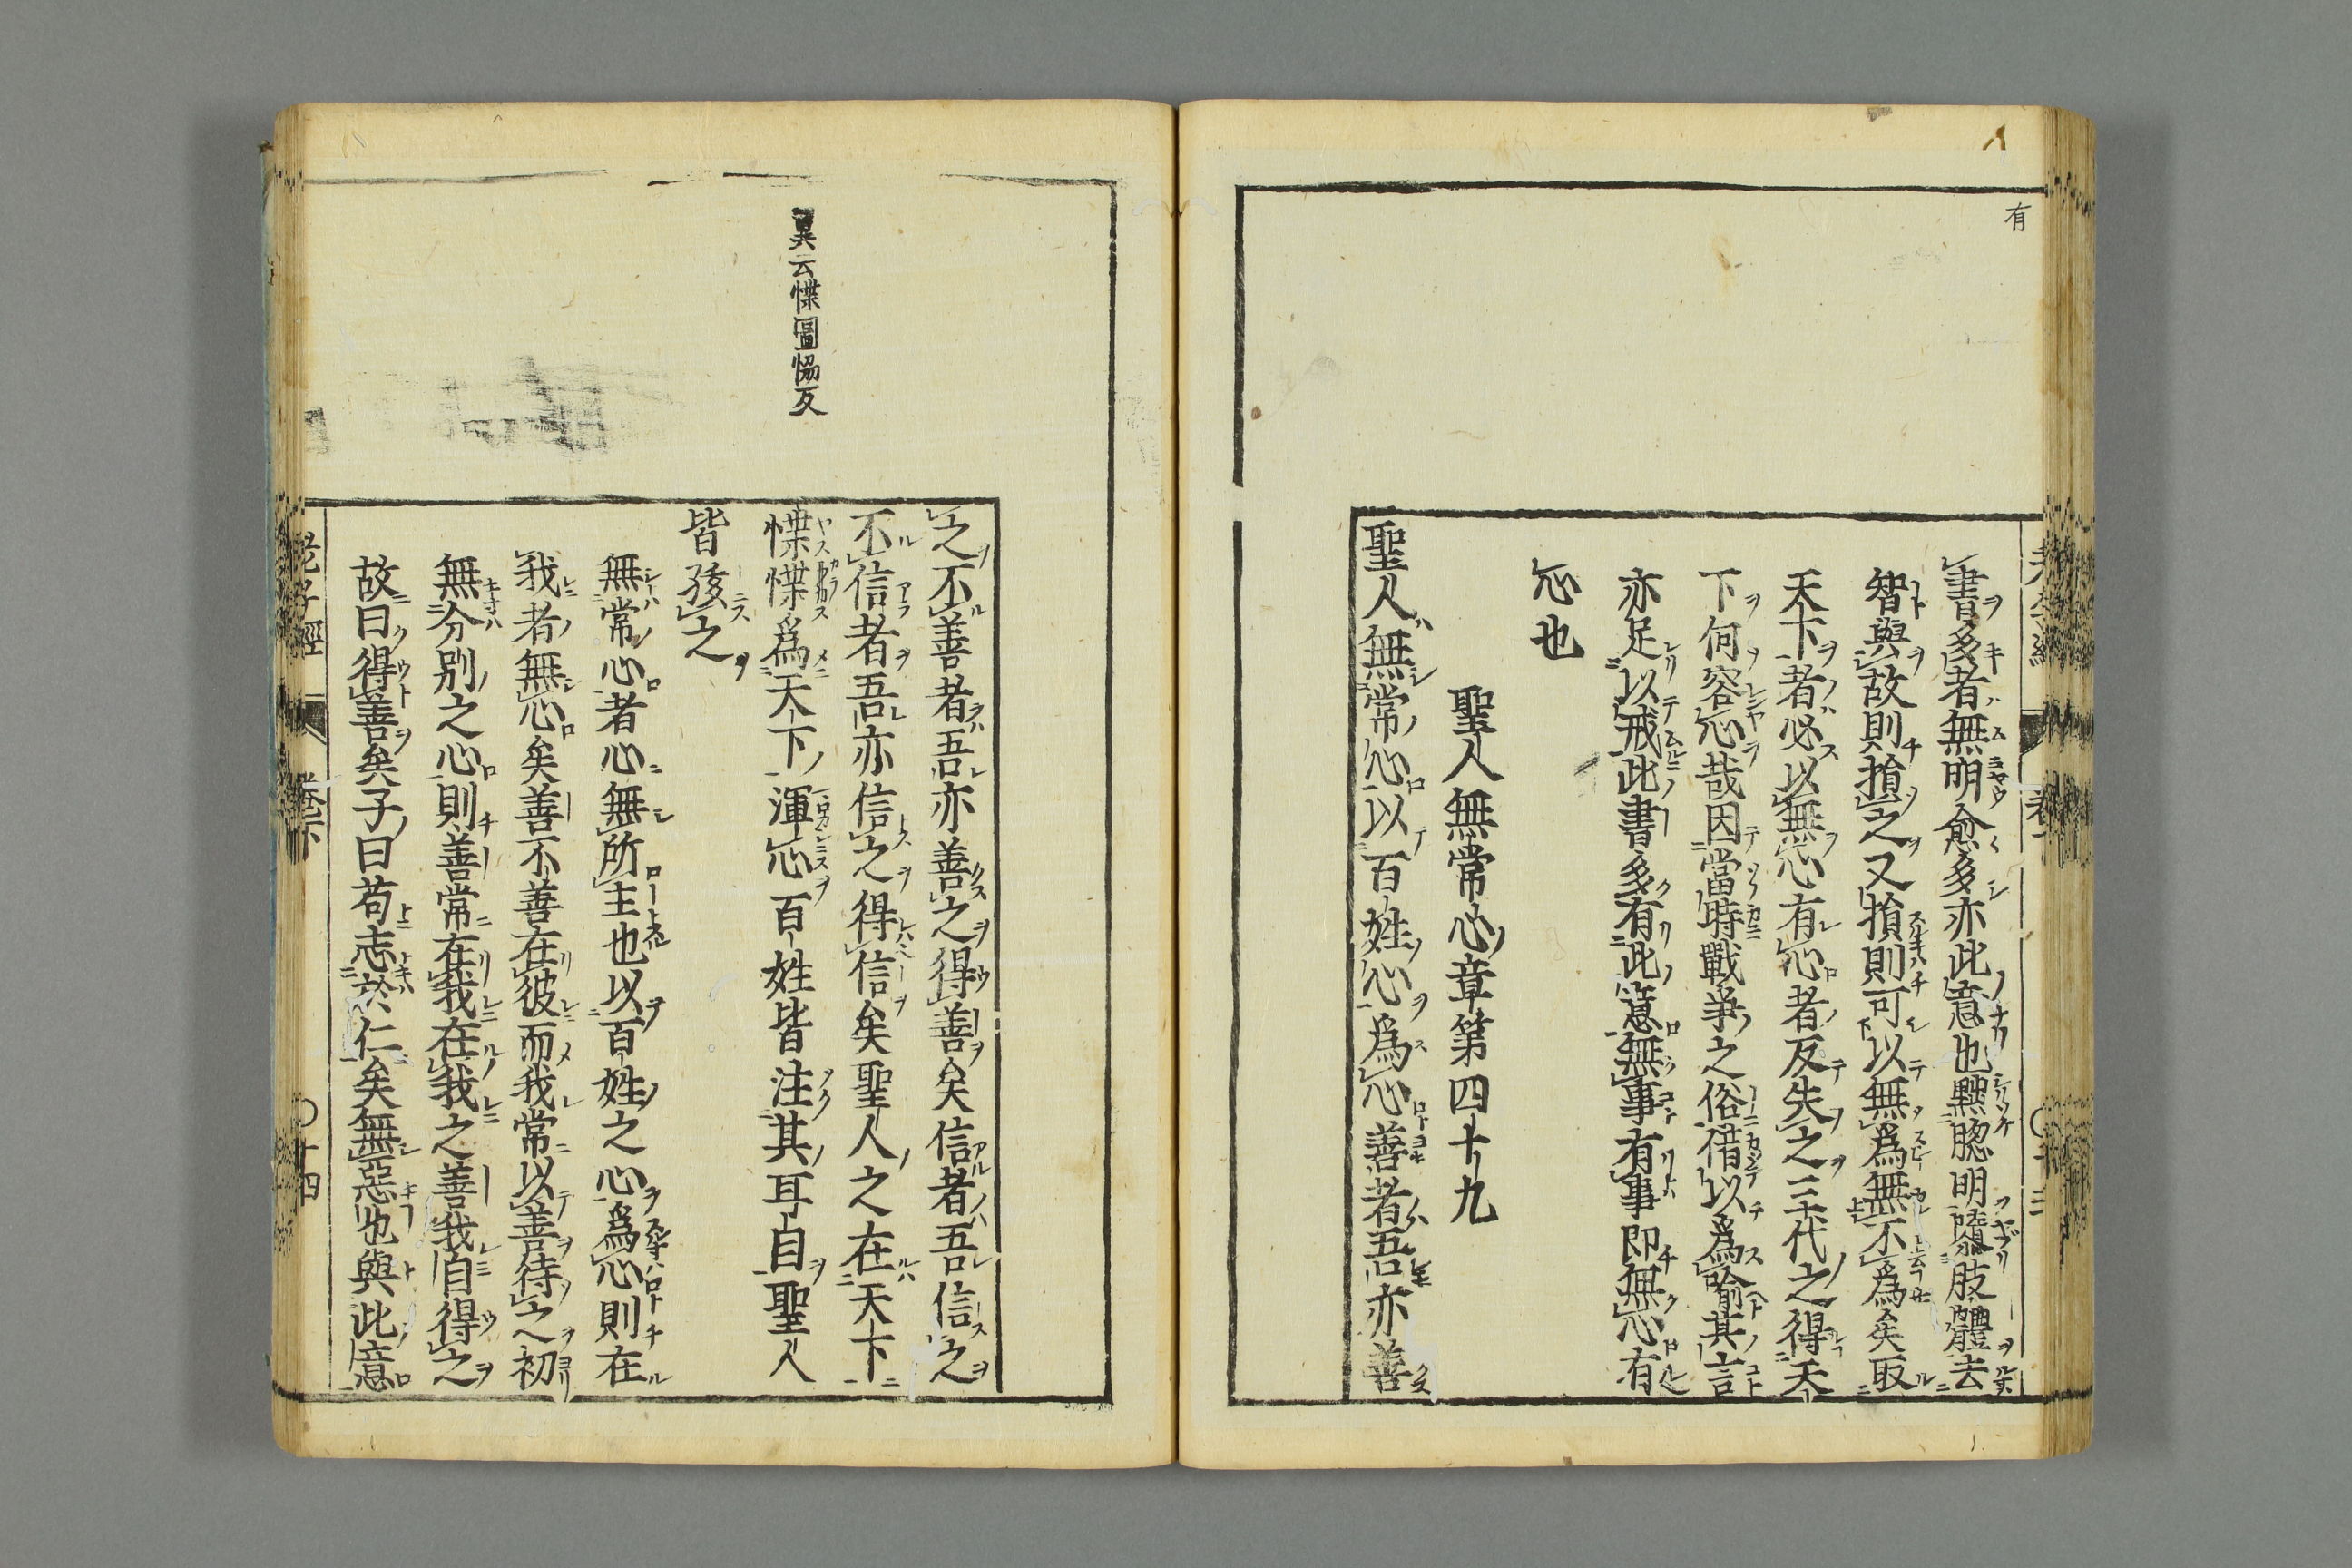 有
書多者無明愈多亦此意也黜聰明隳肢體去
智與故則損之又損則可以無爲無不爲矣取
天下者必以無心有心者反失之三代之得天
下何容心哉因當時戰爭之俗借以爲喻其言
亦足以戒此書多有此意無事有事即無心有
心也
聖人無常心章第四十九
聖人無常心以百姓心爲心善者吾亦善
翼云惵圖恊反
之不善者吾亦善之得善矣信者吾信之
不信者吾亦信之得信矣聖人之在天下
惵惵爲天下渾心百姓皆注其耳目聖人
皆孩之
無常心者心無所主也以百姓之心爲心則在
我者無心矣善不善在彼而我常以善待之初
無分別之心則善常在我在我之善我自得之
故曰得善矣子曰苟志於仁矣無惡也與此意
老子經 卷下 〇十四